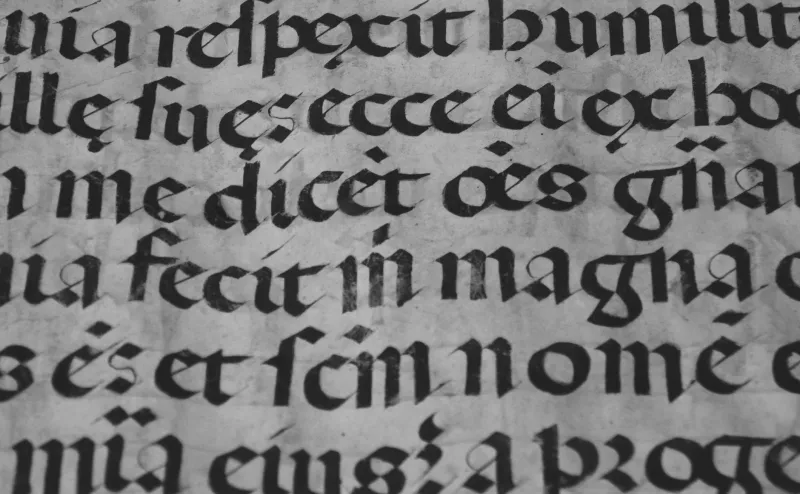 uia reſpexit humilit
illę ſuę: ecce ei ex hoc
me dicēt oēs gn̄a
uia fecit m̄ magna
s ē: et ſcm̄ nomē e
mīa eius: a proge